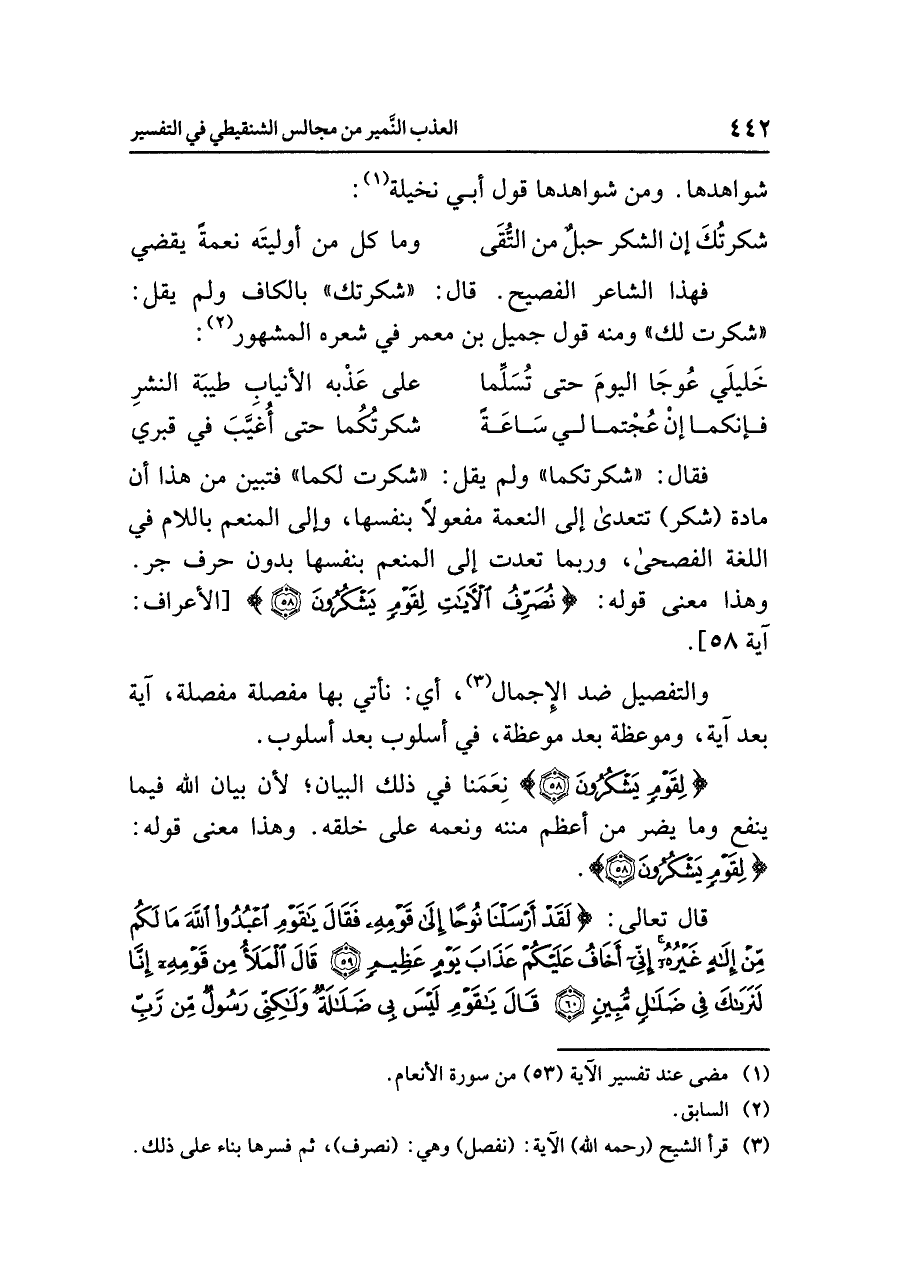 ٤٤٢ العذب النَّمير من مجالس الشنقيطي في التفسير
شواهدها. ومن شواهدها قول أبـي نخيلة(١):
شكرتُكَ إن الشكر حبلٌ من التُّقَى وما كل من أوليتَه نعمةً يقضي
فهذا الشاعر الفصيح. قال: «شكرتك» بالكاف ولم يقل:
«شكرت لك» ومنه قول جميل بن معمر في شعره المشهور(٢):
خَليلَي عُوجَا اليومَ حتى تُسَلِّما على عَذْبه الأنيابِ طيبَة النشرِ
فـإنكمـا إنْ عُجْتمـا لـي سَـاعَـةً شكرتُكُما حتى أُغيَّبَ في قبري
فقال: «شكرتكما» ولم يقل: «شكرت لكما» فتبين من هذا أن
مادة (شكر) تتعدىٰ إلى النعمة مفعولاً بنفسها، وإلى المنعم باللام في
اللغة الفصحىٰ، وربما تعدت إلى المنعم بنفسها بدون حرف جر.
وهذا معنى قوله: ﴿نُصَرِّفُ ٱلْآيَٰتِ لِقَوْمٍ يَشْكُرُونَ ۝٥٨﴾ [الأعراف:
آية ٥٨].
والتفصيل ضد الإِجمال(٣)، أي: نأتي بها مفصلة مفصلة، آية
بعد آية، وموعظة بعد موعظة، في أسلوب بعد أسلوب.
﴿لِقَوْمٍ يَشْكُرُونَ ۝٥٨﴾ نِعَمَنا في ذلك البيان؛ لأن بيان الله فيما
ينفع وما يضر من أعظم مننه ونعمه على خلقه. وهذا معنى قوله:
﴿لِقَوْمٍ يَشْكُرُونَ ۝٥٨﴾.
قال تعالى: ﴿لَقَدْ أَرْسَلْنَا نُوحًا إِلَىٰ قَوْمِهِۦ فَقَالَ يَٰقَوْمِ ٱعْبُدُوا۟ ٱللَّهَ مَا لَكُم
مِّنْ إِلَٰهٍ غَيْرُهُۥٓ إِنِّىٓ أَخَافُ عَلَيْكُمْ عَذَابَ يَوْمٍ عَظِيمٍ ۝٥٩ قَالَ ٱلْمَلَأُ مِن قَوْمِهِۦٓ إِنَّا
لَنَرَىٰكَ فِى ضَلَٰلٍ مُّبِينٍ ۝٦٠ قَالَ يَٰقَوْمِ لَيْسَ بِى ضَلَٰلَةٌ وَلَٰكِنِّى رَسُولٌ مِّن رَّبِّ
(١) مضى عند تفسير الآية (٥٣) من سورة الأنعام.
(٢) السابق.
(٣) قرأ الشيخ (رحمه الله) الآية: (نفصل) وهي: (نصرف)، ثم فسرها بناء على ذلك.